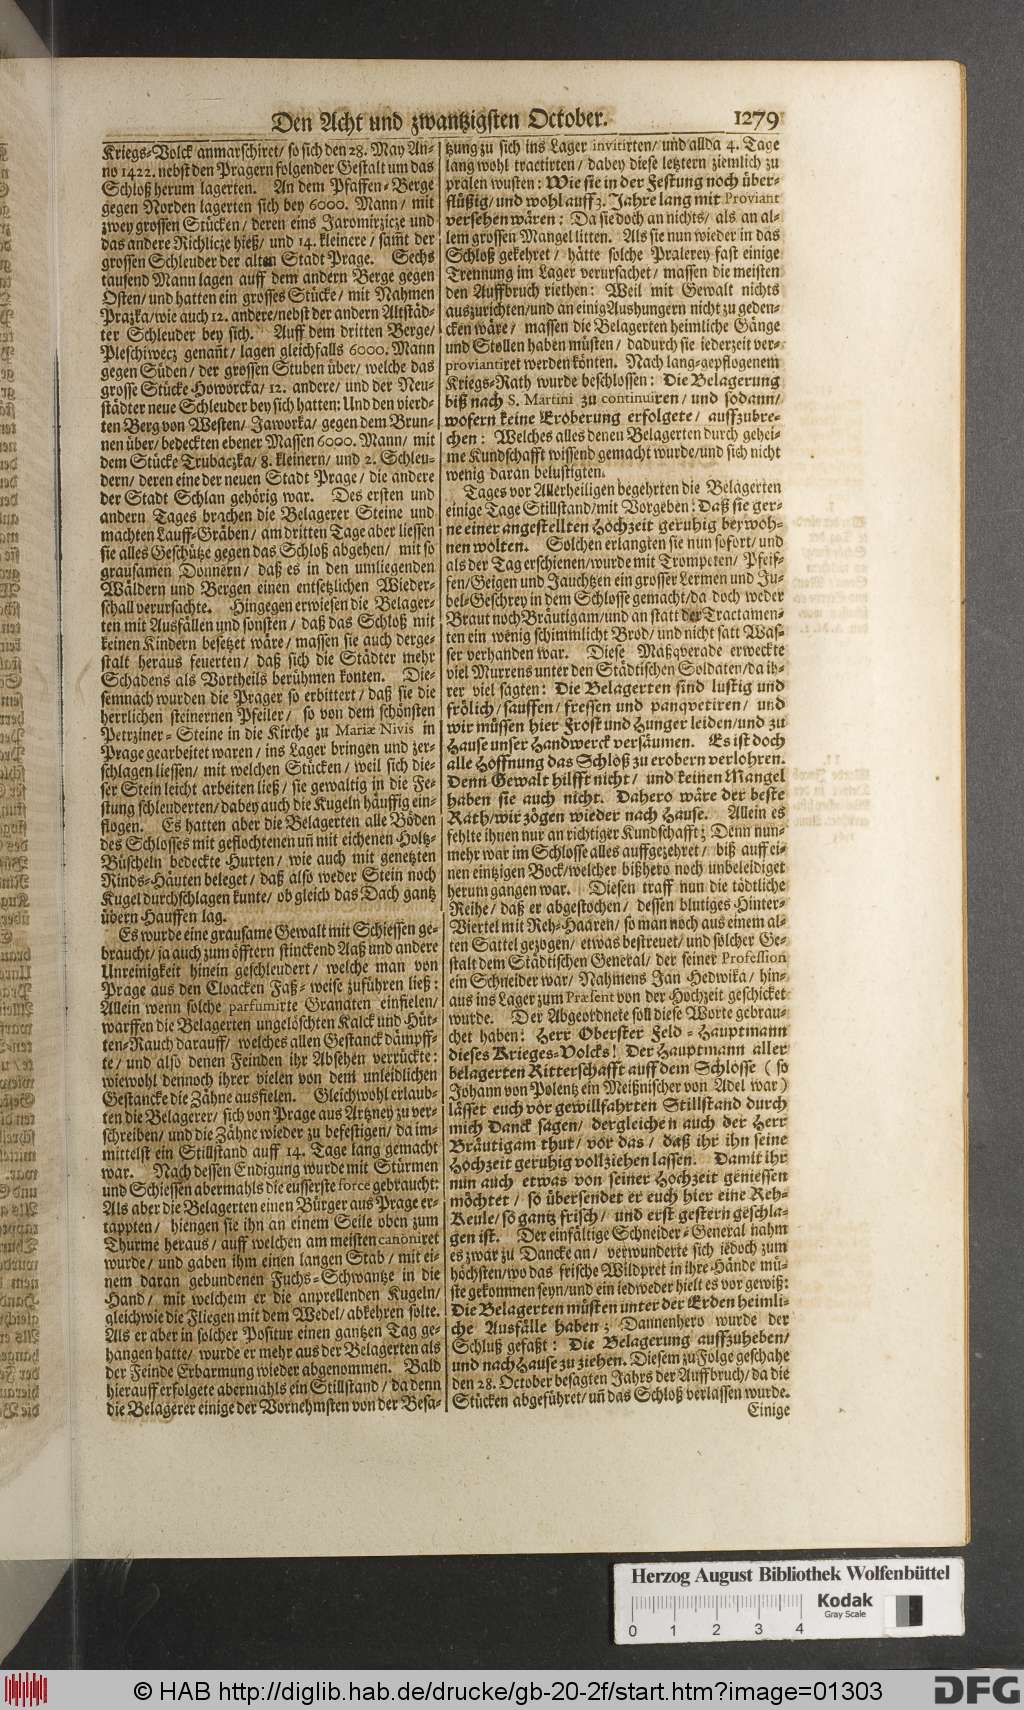 Den Acht und zwantzigsten October. 1279
Kriegs-Volck anmarschiret/ so sich den 28. May An-
no 1422. nebst den Pragern folgender Gestalt um das
Schloß herum lagerten. An dem Pfaffen-Berge
gegen Norden lagerten sich bey 6000. Mann/ mit
zwey grossen Stücken/ deren eins Jaromirzicze und
das andere Richlicze hieß/ und 14. kleinere/ sam̃t der
grossen Schleuder der alten Stadt Prage. Sechs
tausend Mann lagen auff dem andern Berge gegen
Osten/ und hatten ein grosses Stücke/ mit Nahmen
Prazka/ wie auch 12. andere/ nebst der andern Altstäd-
ter Schleuder bey sich. Auff dem dritten Berge/
Pleschiwecz genañt/ lagen gleichfalls 6000. Mann
gegen Süden/ der grossen Stuben über/ welche das
grosse Stücke Howorcka/ 12. andere/ und der Neu-
städter neue Schleuder bey sich hatten: Und den vierd-
ten Berg von Westen/ Jaworka/ gegen dem Brun-
nen über/ bedeckten ebener Massen 6000. Mann/ mit
dem Stücke Trubaczka/ 8. kleinern/ und 2. Schleu-
dern/ deren eine der neuen Stadt Prage/ die andere
der Stadt Schlan gehörig war. Des ersten und
andern Tages brachen die Belagerer Steine und
machten Lauff-Gräben/ am dritten Tage aber liessen
sie alles Geschütze gegen das Schloß abgehen/ mit so
grausamen Donnern/ daß es in den umliegenden
Wäldern und Bergen einen entsetzlichen Wieder-
schall verursachte. Hingegen erwiesen die Belager-
ten mit Ausfällen und sonsten/ daß das Schloß mit
keinen Kindern besetzet wäre/ massen sie auch derge-
stalt heraus feuerten/ daß sich die Städter mehr
Schadens als Vortheils berühmen konten. Die-
semnach wurden die Prager so erbittert/ daß sie die
herrlichen steinernen Pfeiler/ so von dem schönsten
Petrziner-Steine in die Kirche zu Mariæ Nivis in
Prage gearbeitet waren/ ins Lager bringen und zer-
schlagen liessen/ mit welchen Stücken/ weil sich die-
ser Stein leicht arbeiten ließ/ sie gewaltig in die Fe-
stung schleuderten/ dabey auch die Kugeln häuffig ein-
flogen. Es hatten aber die Belagerten alle Böden
des Schlosses mit geflochtenen uñ mit eichenen Holtz-
Büscheln bedeckte Hurten/ wie auch mit genetzten
Rinds-Häuten beleget/ daß also weder Stein noch
Kugel durchschlagen kunte/ ob gleich das Dach gantz
übern Hauffen lag.
Es wurde eine grausame Gewalt mit Schiessen ge-
braucht/ ja auch zum öfftern stinckend Aaß und andere
Unreinigkeit hinein geschleudert/ welche man von
Prage aus den Cloacken Faß-weise zuführen ließ:
Allein wenn solche parfumirte Granaten einfielen/
warffen die Belagerten ungelöschten Kalck und Hüt-
ten-Rauch darauff/ welches allen Gestanck dämpff-
te/ und also denen Feinden ihr Absehen verrückte:
wiewohl dennoch ihrer vielen von dem unleidlichen
Gestancke die Zähne ausfielen. Gleichwohl erlaub-
ten die Belagerer/ sich von Prage aus Artzney zu ver-
schreiben/ und die Zähne wieder zu befestigen/ da im-
mittelst ein Stillstand auff 14. Tage lang gemacht
war. Nach dessen Endigung wurde mit Stürmen
und Schiessen abermahls die eusserste force gebraucht:
Als aber die Belagerten einen Bürger aus Prage er-
tappten/ hiengen sie ihn an einem Seile oben zum
Thurme heraus/ auff welchen am meisten canoniret
wurde/ und gaben ihm einen langen Stab/ mit ei-
nem daran gebundenen Fuchs-Schwantze in die
Hand/ mit welchem er die anprellenden Kugeln/
gleichwie die Fliegen mit dem Wedel/ abkehren solte.
Als er aber in solcher Positur einen gantzen Tag ge-
hangen hatte/ wurde er mehr aus der Belagerten als
der Feinde Erbarmung wieder abgenommen. Bald
hierauff erfolgete abermahls ein Stillstand/ da denn
die Belagerer einige der Vornehmsten von der Besa-
tzung zu sich ins Lager invitirten/ und allda 4. Tage
lang wohl tractirten/ dabey diese letztern ziemlich zu
pralen wusten: Wie sie in der Festung noch über-
flüßig/ und wohl auff 3. Jahre lang mit Proviant
versehen wären: Da sie doch an nichts/ als an al-
lem grossen Mangel litten. Als sie nun wieder in das
Schloß gekehret/ hätte solche Pralerey fast einige
Trennung im Lager verursachet/ massen die meisten
den Auffbruch riethen: Weil mit Gewalt nichts
auszurichten/ und an einig Aushungern nicht zu geden-
cken wäre/ massen die Belagerten heimliche Gänge
und Stollen haben müsten/ dadurch sie iederzeit ver-
proviantiret werden könten. Nach lang-gepflogenem
Kriegs-Rath wurde beschlossen: Die Belagerung
biß nach S. Martini zu continuiren/ und sodann/
wofern keine Eroberung erfolgete/ auffzubre-
chen: Welches alles denen Belagerten durch gehei-
me Kundschafft wissend gemacht wurde/ und sich nicht
wenig daran belustigten.
Tages vor Allerheiligen begehrten die Belagerten
einige Tage Stillstand/ mit Vorgeben: Daß sie ger-
ne einer angestellten Hochzeit geruhig beywoh-
nen wolten. Solchen erlangten sie nun sofort/ und
als der Tag erschienen/ wurde mit Trompeten/ Pfeif-
fen/ Geigen und Jauchtzen ein grosser Lermen und Ju-
bel-Geschrey in dem Schlosse gemacht/ da doch weder
Braut noch Bräutigam/ und an statt der Tractamen-
ten ein wenig schimmlicht Brod/ und nicht satt Was-
ser verhanden war. Diese Maßqverade erweckte
viel Murrens unter den Städtischen Soldaten/ da ih-
rer viel sagten: Die Belagerten sind lustig und
frölich/ sauffen/ fressen und panqvetiren/ und
wir müssen hier Frost und Hunger leiden/ und zu
Hause unser Handwerck versäumen. Es ist doch
alle Hoffnung das Schloß zu erobern verlohren.
Denn Gewalt hilfft nicht/ und keinen Mangel
haben sie auch nicht. Dahero wäre der beste
Rath/ wir zögen wieder nach Hause. Allein es
fehlte ihnen nur an richtiger Kundschafft; Denn nun-
mehr war im Schlosse alles auffgezehret/ biß auff ei-
nen eintzigen Bock/ welcher bißhero noch unbeleidiget
herum gangen war. Diesen traff nun die tödtliche
Reihe/ daß er abgestochen/ dessen blutiges Hinter-
Viertel mit Reh-Haaren/ so man noch aus einem al-
ten Sattel gezogen/ etwas bestreuet/ und solcher Ge-
stalt dem Städtischen General/ der seiner Profession
ein Schneider war/ Nahmens Jan Hedwika/ hin-
aus ins Lager zum Præsent von der Hochzeit geschicket
wurde. Der Abgeordnete soll diese Worte gebrau-
chet haben: Herr Oberster Feld-Hauptmann
dieses Krieges-Volcks! Der Hauptmann aller
belagerten Ritterschafft auff dem Schlosse (so
Johann von Polentz ein Meißnischer von Adel war)
lässet euch vor gewillfahrten Stillstand durch
mich Danck sagen/ dergleichen auch der Herr
Bräutigam thut/ vor das/ daß ihr ihn seine
Hochzeit geruhig vollziehen lassen. Damit ihr
nun auch etwas von seiner Hochzeit geniessen
möchtet/ so übersendet er euch hier eine Reh-
Keule/ so gantz frisch/ und erst gestern geschla-
gen ist. Der einfältige Schneider-General nahm
es zwar zu Dancke an/ verwunderte sich iedoch zum
höchsten/ wo das frische Wildpret in ihre Hände mü-
ste gekommen seyn/ und ein iedweder hielt es vor gewiß:
Die Belagerten müsten unter der Erden heimli-
che Ausfälle haben; Dannenhero wurde der
Schluß gefaßt: Die Belagerung auffzuheben/
und nach Hause zu ziehen. Diesem zu Folge geschahe
den 28. October besagten Jahrs der Auffbruch/ da die
Stücken abgeführet/ uñ das Schloß verlassen wurde.
Einige
Herzog August Bibliothek Wolfenbüttel
Kodak
Gray Scale
0 1 2 3 4
© HAB http://diglib.hab.de/drucke/gb-20-2f/start.htm?image=01303
DFG